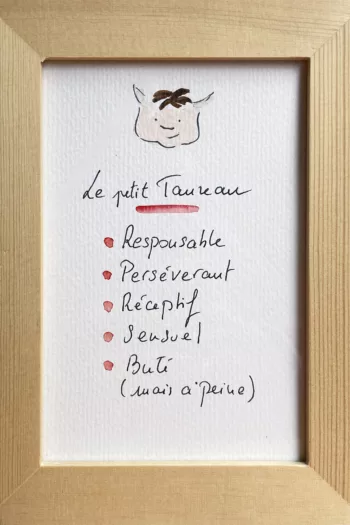 Le petit Taureau
Responsable
Persévérant
Réceptif
Sensuel
Buté
(mais à peine)